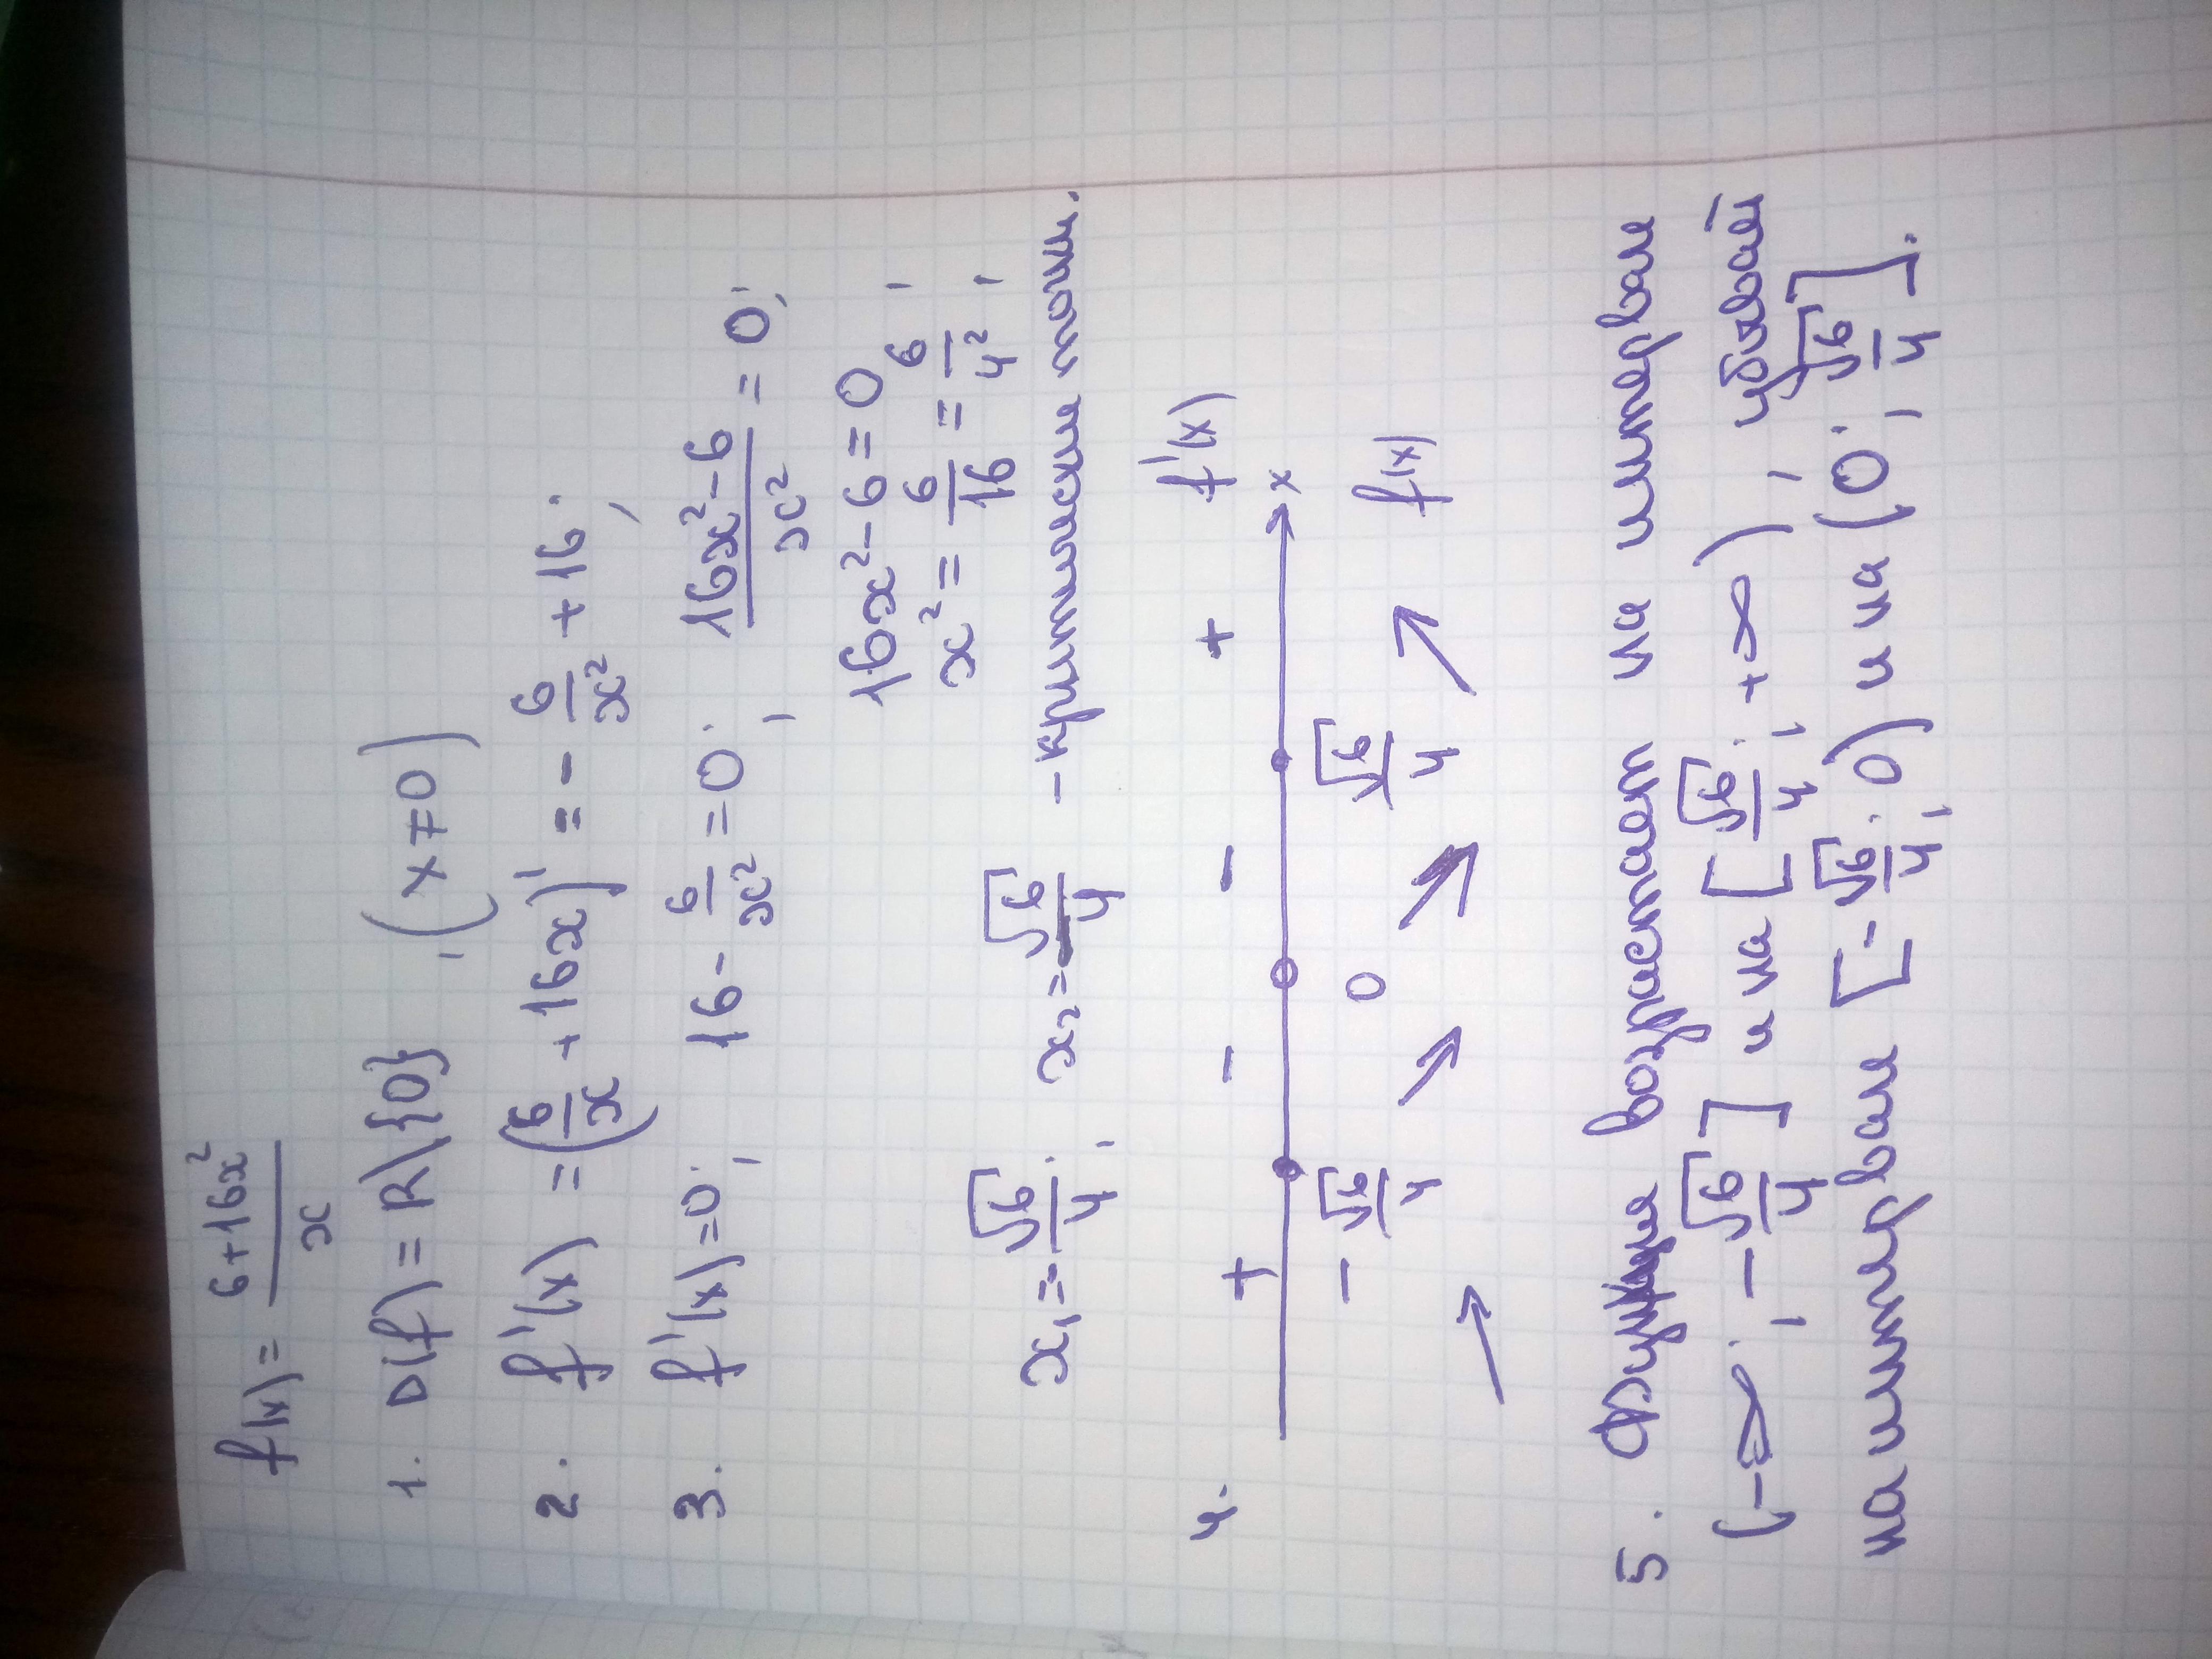 f(x) = (6+16x²)/x
1. D(f) = R\{0} , (x≠0)
2. f'(x) = (6/x + 16x)' = - 6/x² + 16;
3. f'(x)=0; 16 - 6/x² = 0; (16x²-6)/x² = 0;
16x²-6=0
x² = 6/16 = 6/4²;
x₁ = -√6/4; x₂ = √6/4 - критические точки.
4. + - - + f'(x)
x
-√6/4 0 √6/4 f(x)
5. Функция возрастает на интервале
(-∞; -√6/4] и на [√6/4; +∞), убывает
на интервале [-√6/4; 0) и на (0; √6/4].